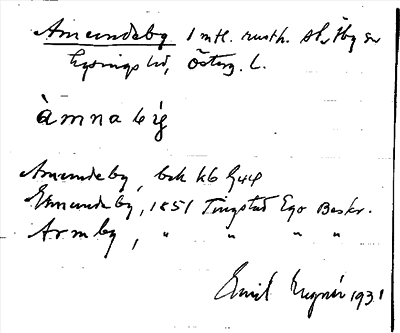 Amundeby 1 mtl. rusth. Skällby sn
Lysings hd, Österg. L.
àmnabíg
Amundeby, bek kb
Amundeby, 1851 Tingstad Ego Beskr.
Armby, " " " "
Emil 1931